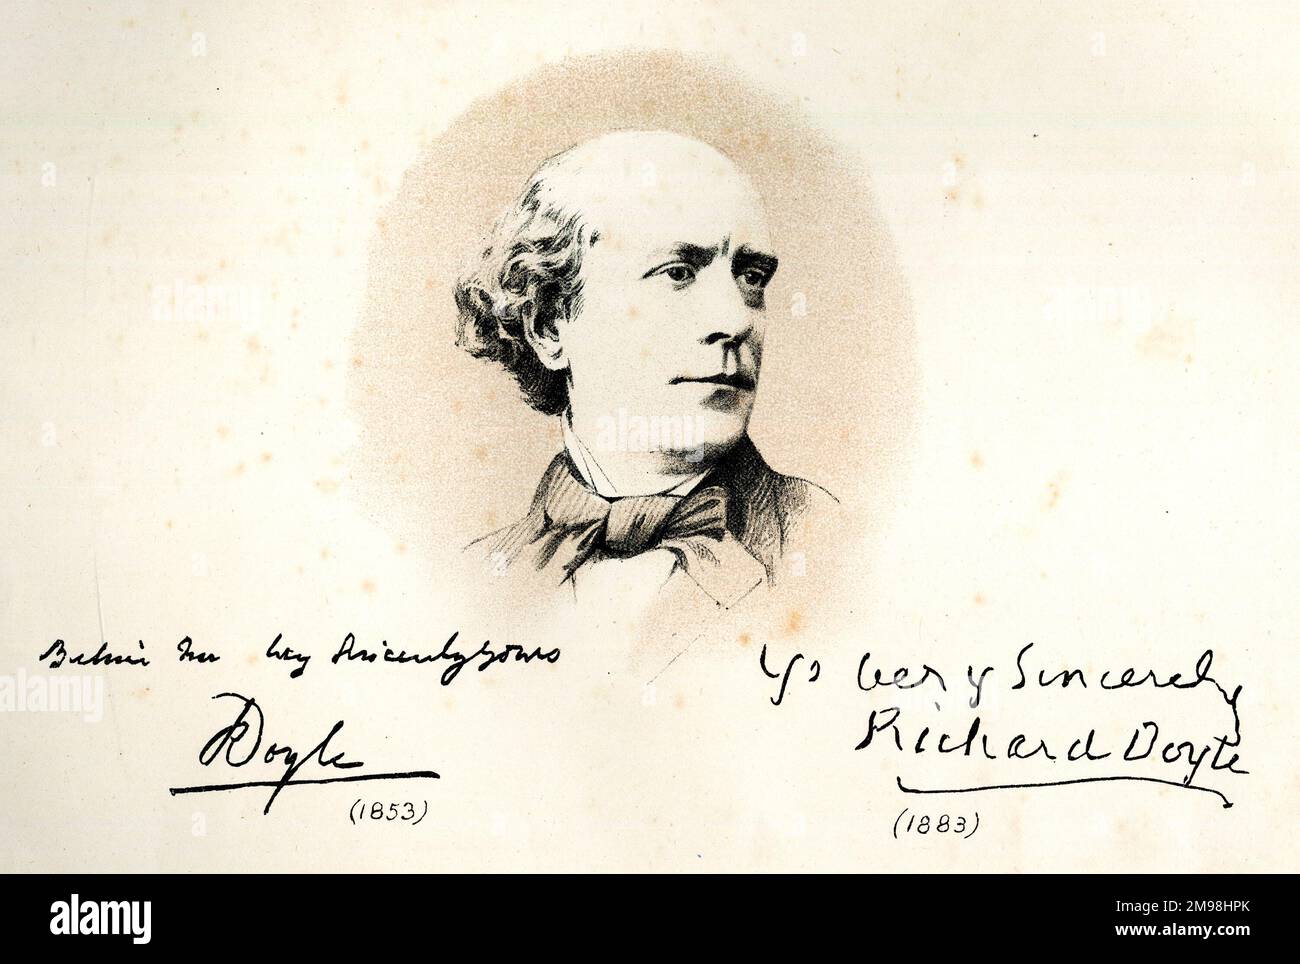 Believe me Very Sincerely Yours
R Doyle
(1853)
Yrs Very Sincerely
Richard Doyle
(1883)
alamy
Image ID: 2M98HPK
www.alamy.com